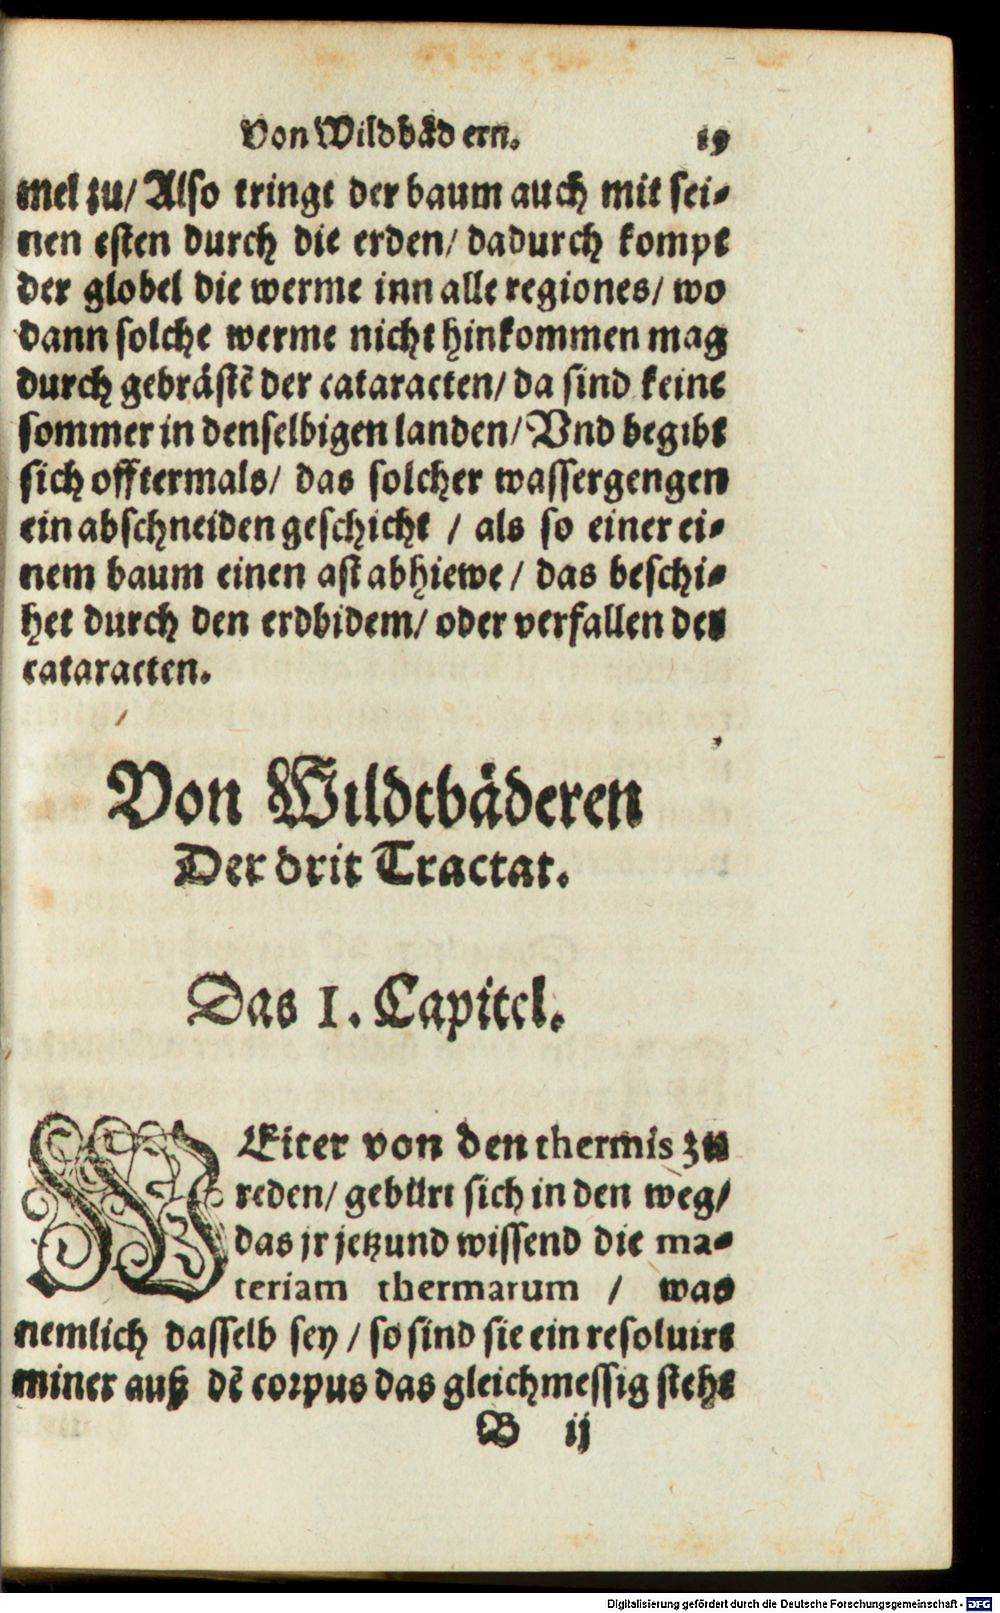 Von Wildbådern. 19
mel zu/ Also tringt der baum auch mit sei-
nen esten durch die erden/ dadurch kompt
der globel die werme inn alle regiones/ wo
dann solche werme nicht hinkommen mag
durch gebråstē der cataracten/ da sind keine
sommer in denselbigen landen/ Vnd begibt
sich offtermals/ das solcher wassergengen
ein abschneiden geschicht / als so einer ei-
nem baum einen ast abhiewe / das beschi-
het durch den erdbidem/ oder verfallen der
cataracten.
Von Wildtbåderen
Der drit Tractat.
Das I. Capitel.
WEiter von den thermis zu
reden/ gebürt sich in den weg/
das jr jetzund wissend die ma-
teriam thermarum / was
nemlich dasselb sey / so sind sie ein resoluirt
miner auß dē corpus das gleichmessig steht
B ij
Digitalisierung gefördert durch die Deutsche Forschungsgemeinschaft - DFG